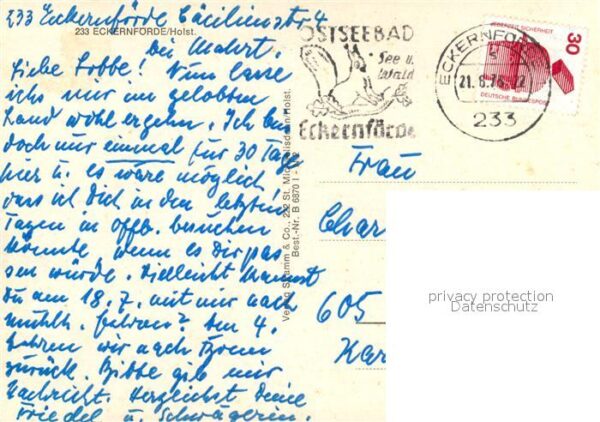 233 Eckernförde Cäcilienstr 4
233 ECKERNFÖRDE/Holst.
Bei
Liebe Lobbe! Nun lasse
ichs mir im gelobten
Land wohl ergehen. Ich bin
doch nur einmal für 30 Tage
hier u. es wäre möglich,
dass ich Dich in den letzten
Tagen in Offb. besuchen
könnte, wenn es Dir pas
sen würde. Vielleicht kannst
Du am 18.7. mit mir nach
Mühlh. fahren? Den 4.
fahren wir nach
zurück. Bitte gib mir
Nachricht. Herzlichst Deine
Friedel u. Schwägerin.
Verlag Schamm & Co., 232 St. Michaelisdonn/Holst.
Best.-Nr. B 6870 I
OSTSEEBAD
See u.
Wald
Eckernförde
ECKERNFÖRDE
21.6.76
233
JEDERZEIT SICHERHEIT
30
DEUTSCHE BUNDESPOST
Frau
Char
605
Kar
privacy protection
Datenschutz